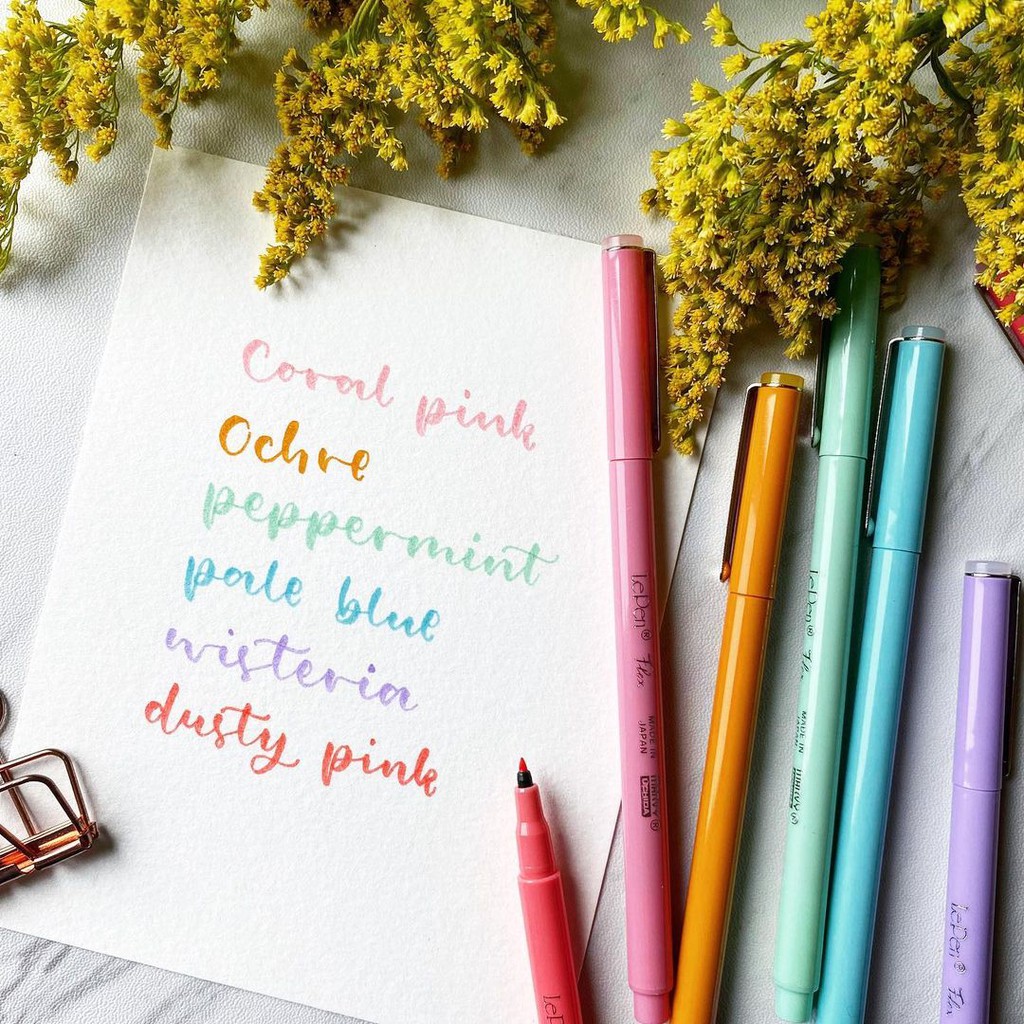 Coral pink
Ochre
peppermint
pale blue
wisteria
dusty pink
LePen® Flex
MADE IN
JAPAN
UCHIDA
LePen® Flex
MADE IN
JAPAN
LePen® Flex
LePen